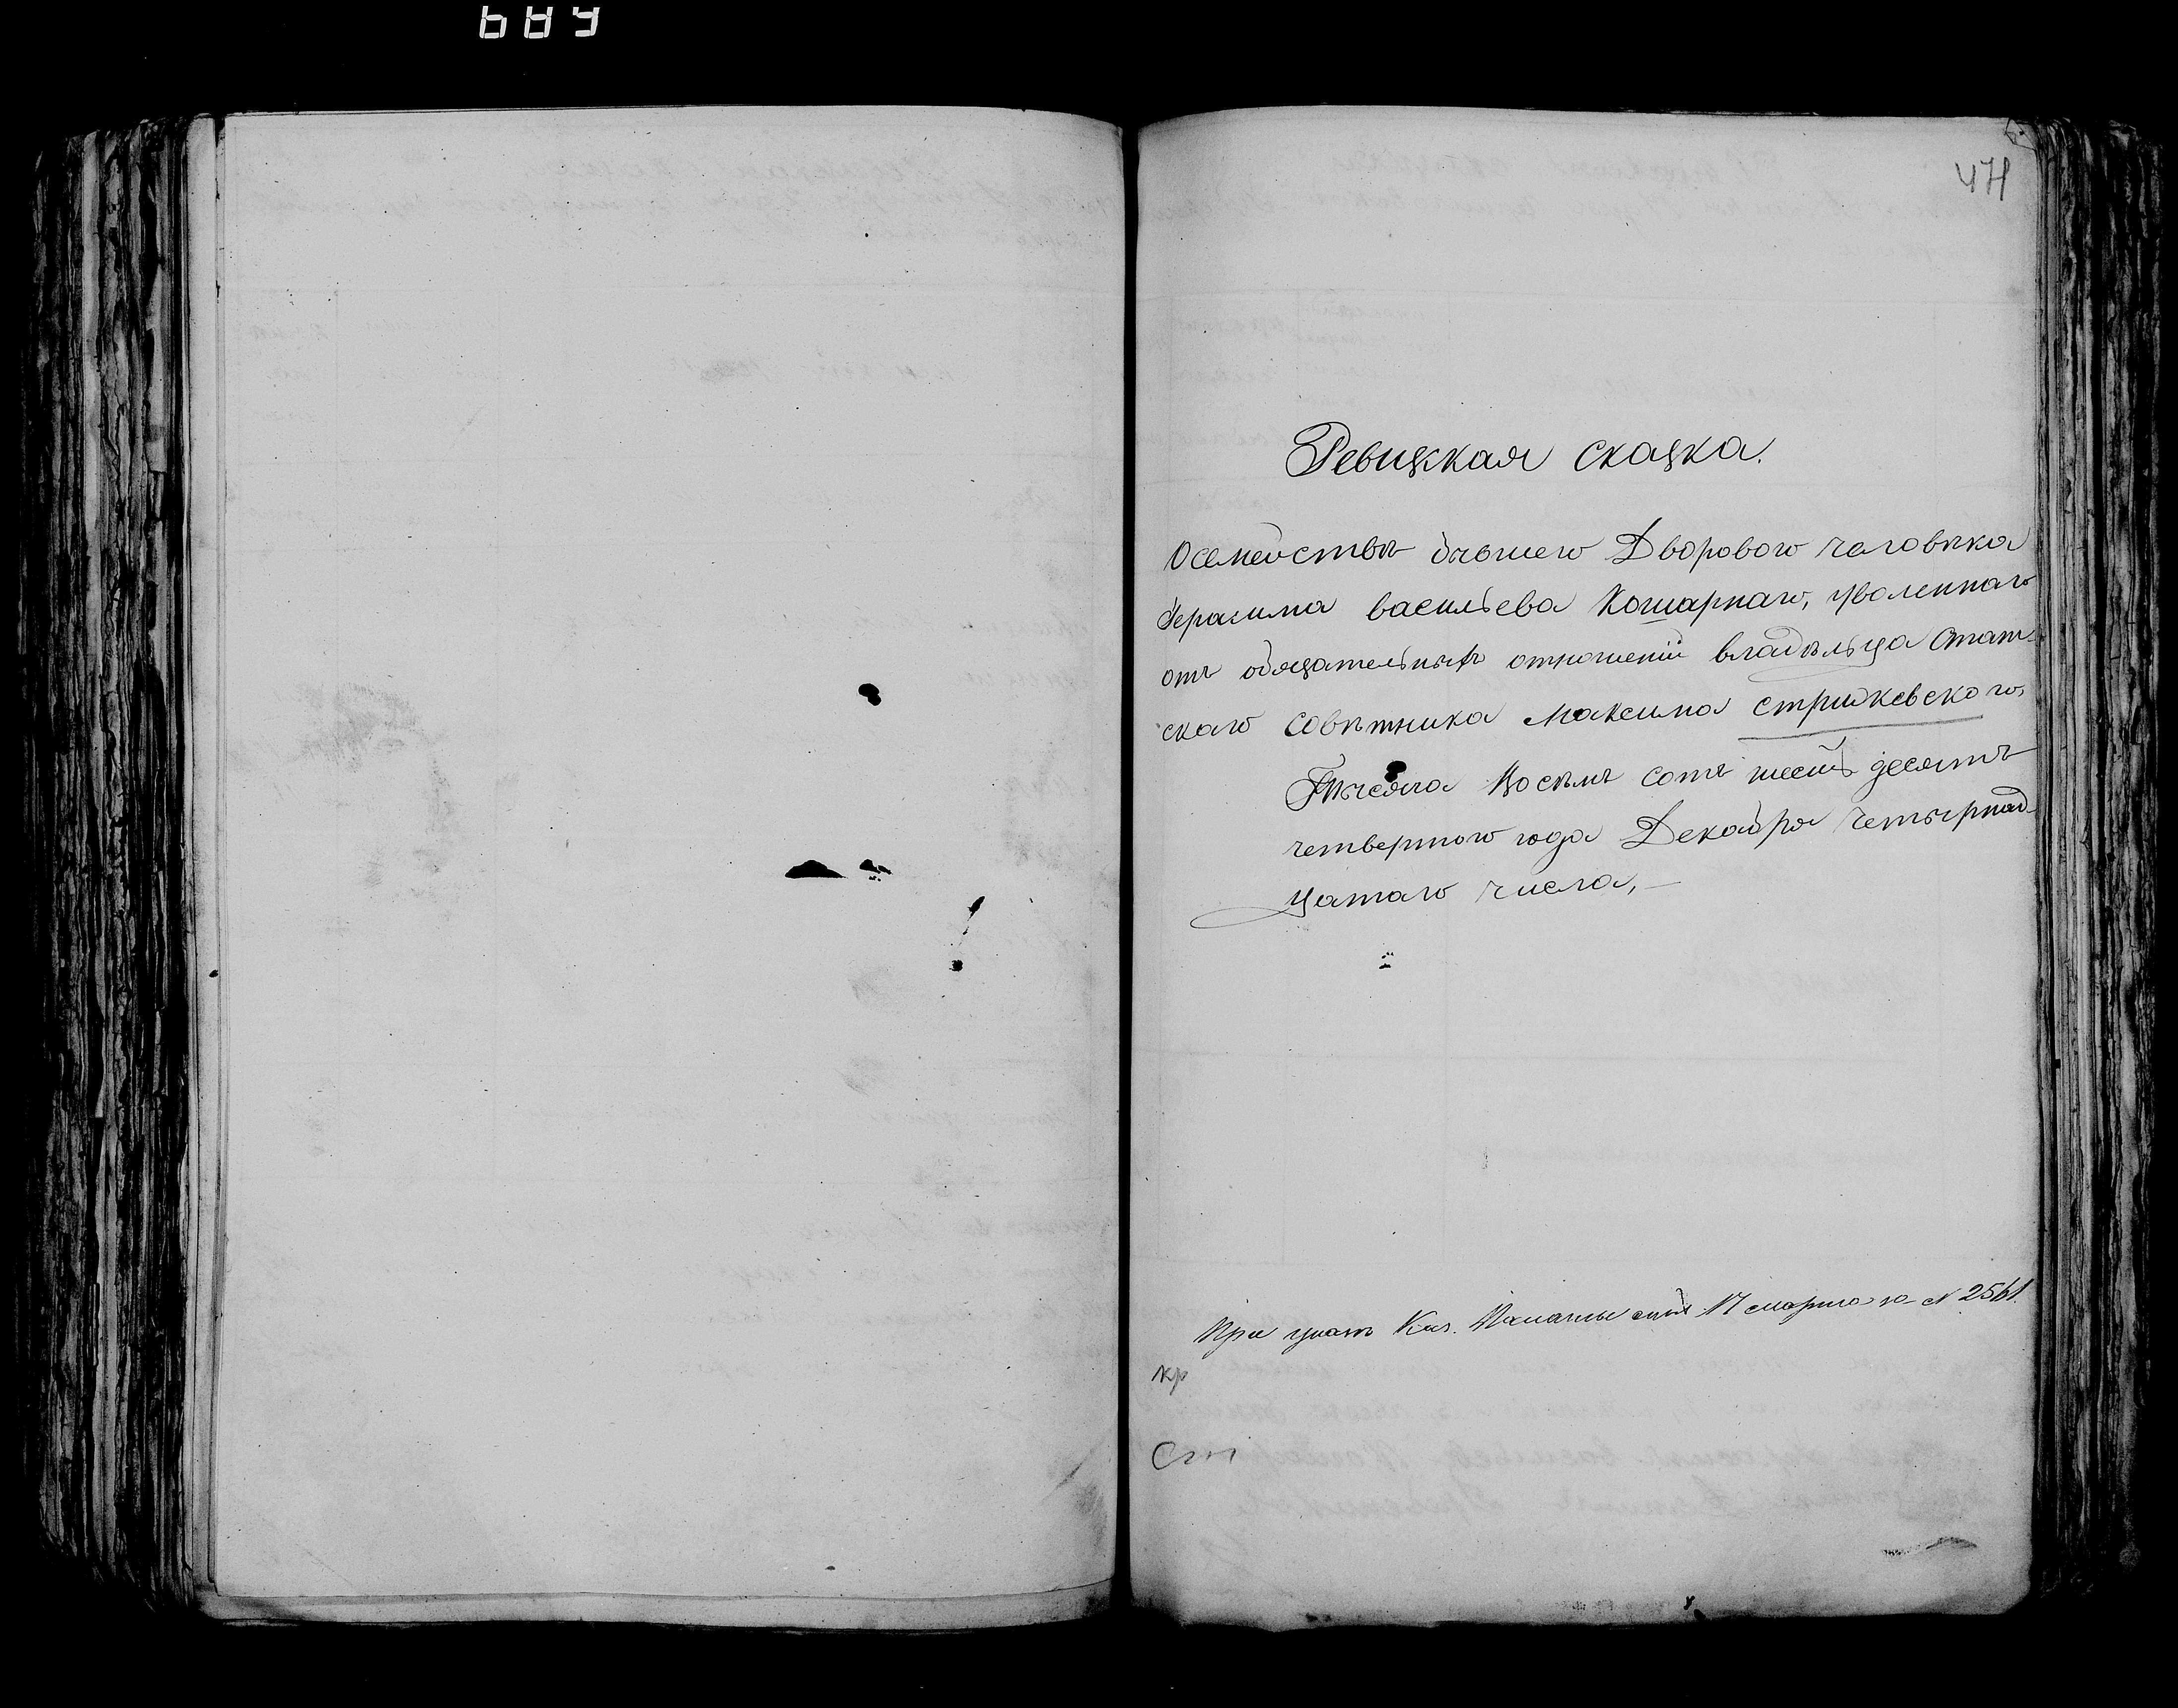 689
471
Ревижкая скаζка.
О семействѣ бывшего Дворового человѣка
Герасима васильева Кошарнаго, уволеннаго
отъ обязательныхъ отношеній владѣльца Стат-
скаго Совѣтника Максима Стрижевского,
Тысяча Восѣмъ сотъ шестьдесятъ
четвертого года Декабря Четырнад-
цатаго числа, —
При указѣ Каз. Палаты отъ 17 марта за № 2561.
кр
Ст